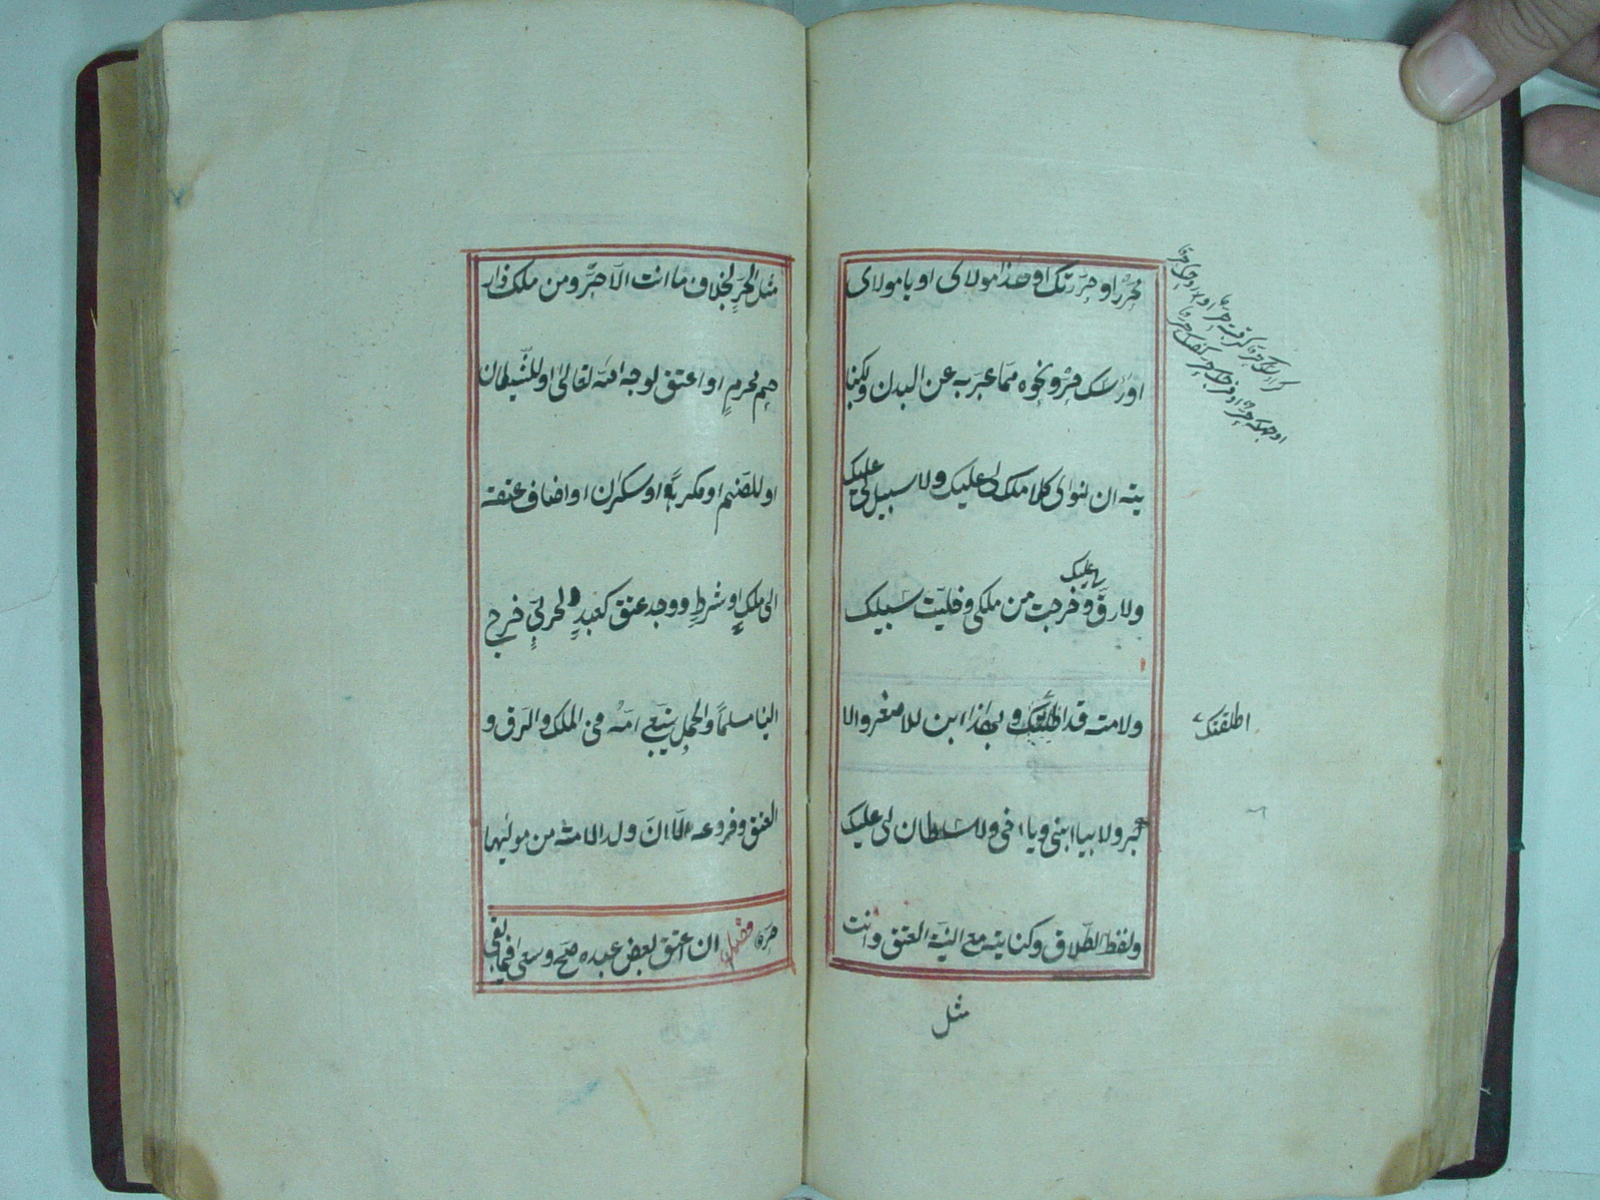 محرر او حررتك او هذا مولاي او يا مولاي
او رأسك حر ونحوه مما عبر به عن البدن وبكنا
يته ان نوى كلا ملك لي عليك ولا سبيل لي عليك
ولا رق لي عليك وخرجت من ملكي وخليت سبيلك
ولامته قد اطلقتك وبهذا ابن للاصغر والا
كبر ولا بيا ابني ويا اخي ولا سلطان لي عليك
ولفظ الطلاق وكنايته مع النية العتق وانت
مثل
اطلقتك
مثل الحر بخلاف ما انت الا حر ومن ملك ذا ر
حم محرم او اعتق لوجه الله تعالى او للشيطان
او للصنم او مكرها او سكران او اضاف عتقه
الى ملك او شرط ووجد عتق كعبد لحربي خرج
الينا مسلما والحمل يتبع امه في الملك والرق و
العتق وفروعه الا ان ولد الامة من موليها
حر فصل ان اعتق بعض عبده صح وسعى فيما بقي